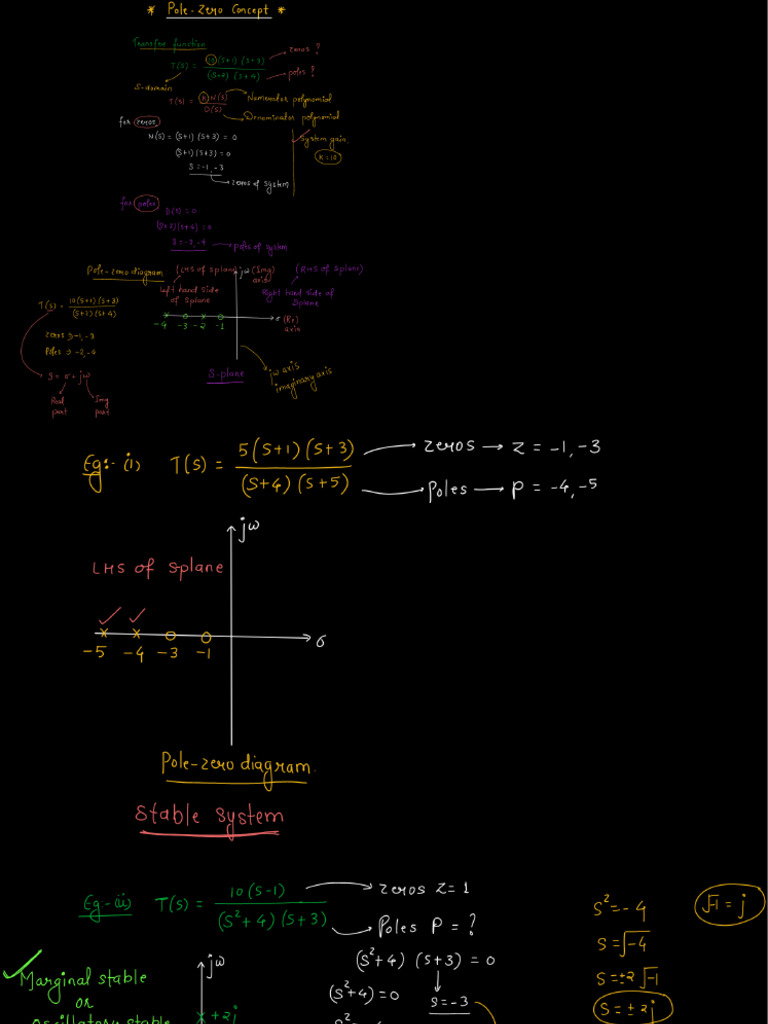 * Pole-Zero Concept *
Transfer function
T(S) = 10(S+1)(S+3) / (S+2)(S+4)
zeros ?
poles ?
S-domain
T(S) = K N(S) / D(S)
Numerator polynomial
Denominator polynomial
for zeros
N(S) = (S+1)(S+3) = 0
(S+1)(S+3) = 0
S = -1, -3
zeros of system
System gain
K = 10
for poles
D(S) = 0
(S+2)(S+4) = 0
S = -2, -4
poles of system
Pole-zero diagram
(LHS of splane)
Left hand side
of splane
jω (Img)
axis
(RHS of splane)
Right hand side of
Splane
T(S) = 10(S+1)(S+3) / (S+2)(S+4)
zeros => -1, -3
Poles => -2, -4
-4 -3 -2 -1
σ (Re)
axis
S = σ + jω
Real
part
Img
part
S-plane
jω axis
imaginary axis
Eg:- (i) T(S) = 5(S+1)(S+3) / (S+4)(S+5)
zeros → Z = -1, -3
Poles → P = -4, -5
jω
LHS of splane
-5 -4 -3 -1
σ
Pole-zero diagram.
Stable System
Eg:-(ii) T(S) = 10(S-1) / (S²+4)(S+3)
zeros Z=1
Poles P = ?
(S²+4)(S+3) = 0
(S²+4) = 0
S = -3
S² = -4
S = √-4
S = ±2√-1
S = ±2j
√-1 = j
Marginal stable
or
oscillatory stable
jω
+2j